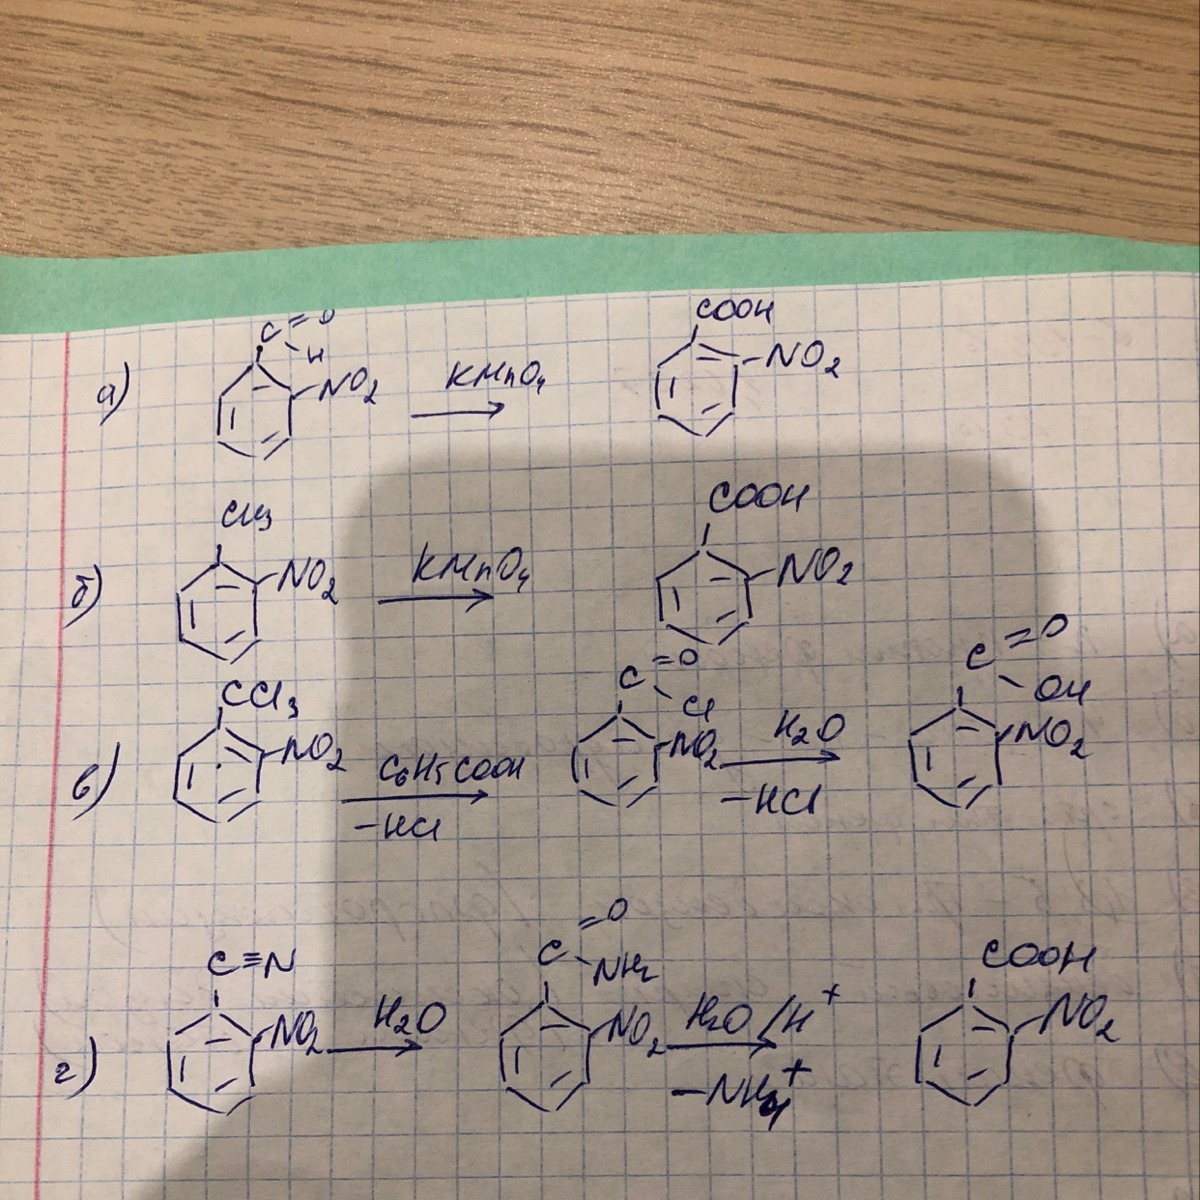 а) C=O H NO2 KMnO4 COOH NO2
б) CH3 NO2 KMnO4 COOH NO2
в) CCl3 NO2 C6H5COOH -HCl C=O Cl NO2 H2O -HCl C=O OH NO2
г) C≡N NO2 H2O C=O NH2 NO2 H2O/H+ -NH4+ COOH NO2